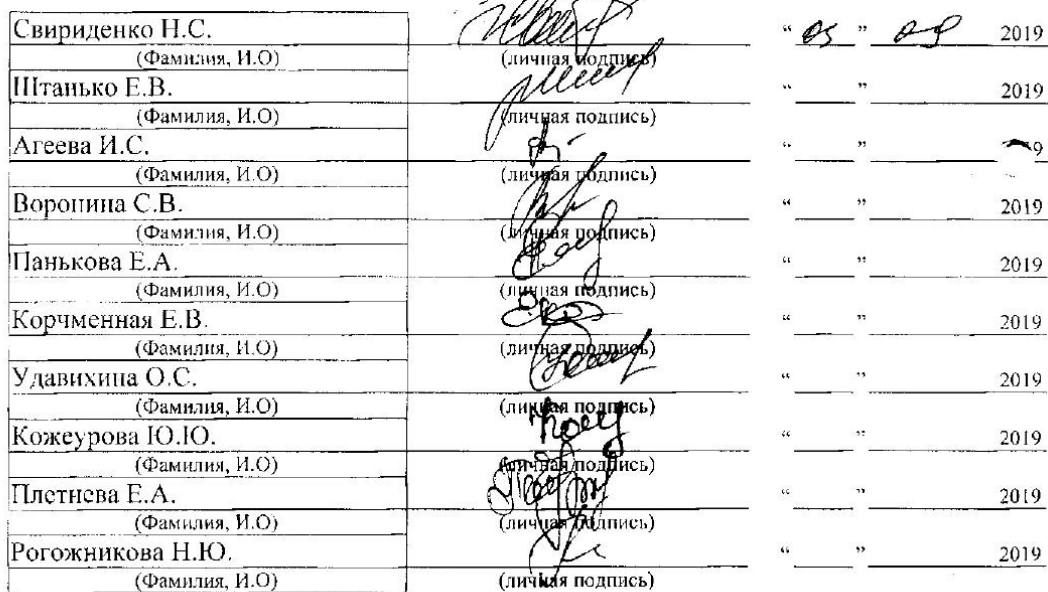 Свириденко Н.С. “ 03 ” 09 2019
(Фамилия, И.О) (личная подпись)
Штанько Е.В. “ ” 2019
(Фамилия, И.О) (личная подпись)
Агеева И.С. “ ” 9
(Фамилия, И.О) (личная подпись)
Воронина С.В. “ ” 2019
(Фамилия, И.О) (личная подпись)
Панькова Е.А. “ ” 2019
(Фамилия, И.О) (личная подпись)
Корчменная Е.В. “ ” 2019
(Фамилия, И.О) (личная подпись)
Удавихина О.С. “ ” 2019
(Фамилия, И.О) (личная подпись)
Кожеурова Ю.Ю. “ ” 2019
(Фамилия, И.О) (личная подпись)
Плетнева Е.А. “ ” 2019
(Фамилия, И.О) (личная подпись)
Рогожникова Н.Ю. “ ” 2019
(Фамилия, И.О) (личная подпись)